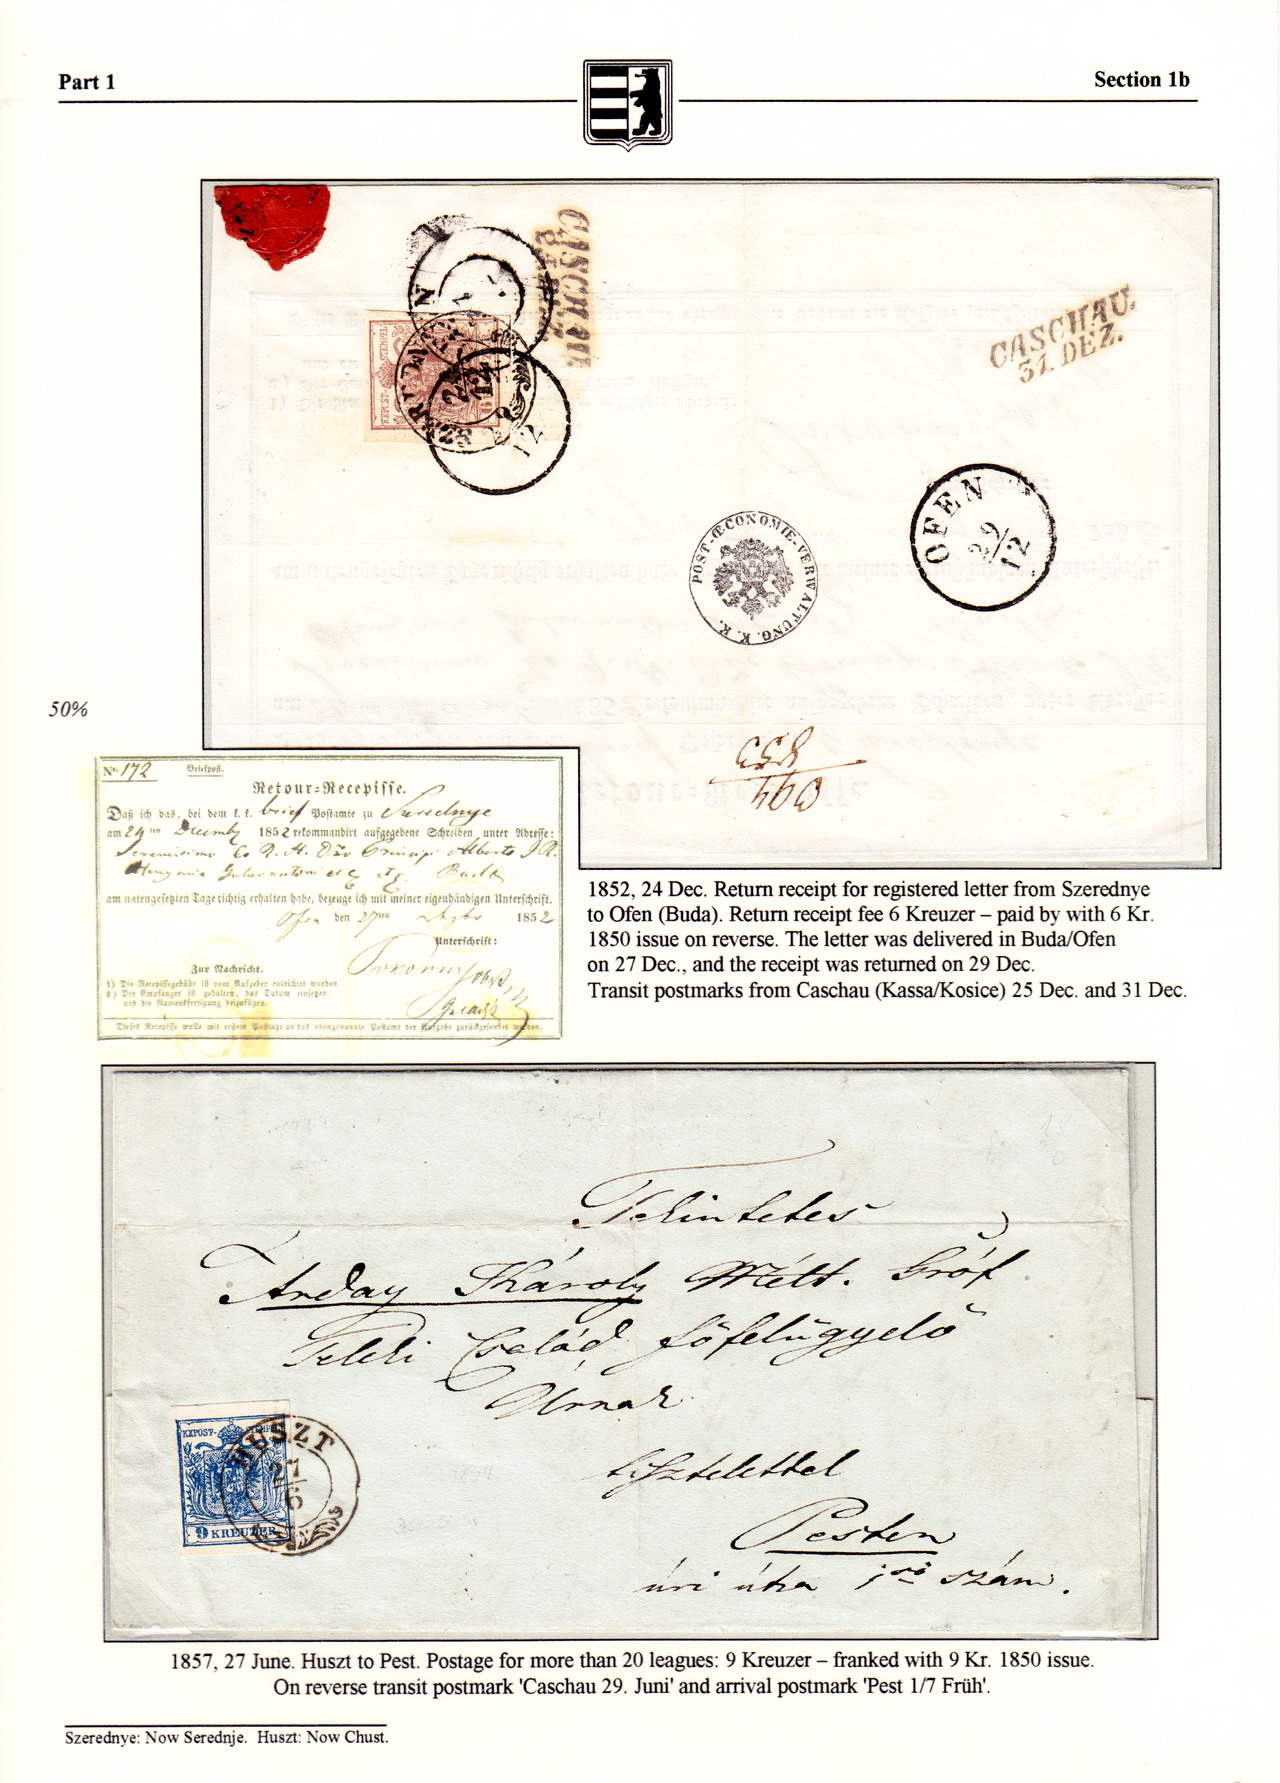 Part 1
Section 1b
CASCHAU
CASCHAU.
31. DEZ.
OFEN
29/12
POST-ŒCONOMIE-VERWALTUNG. K. K.
50%
No. 172
Briefpost.
Retour-Recepisse.
Daß ich das, bei dem k. k. brief Postamte zu Szerednye
am 24ten Decemb 1852 rekommandirt aufgegebene Schreiben unter Adresse:
Buda
am untengesetzten Tage richtig erhalten habe, bezeuge ich mit meiner eigenhändigen Unterschrift.
Ofen den 27ten 1852
Unterschrift:
Zur Nachricht.
1) Die Recepissegebühr ist vom Aufgeber entrichtet worden.
2) Der Empfänger ist gehalten, das Datum einsetzen,
und die Namensfertigung beizufügen.
Dieses Recepisse wolle mit erstem Posttage an das obengenannte Postamt der Aufgabe zurückgesendet werden.
1852, 24 Dec. Return receipt for registered letter from Szerednye
to Ofen (Buda). Return receipt fee 6 Kreuzer – paid by with 6 Kr.
1850 issue on reverse. The letter was delivered in Buda/Ofen
on 27 Dec., and the receipt was returned on 29 Dec.
Transit postmarks from Caschau (Kassa/Kosice) 25 Dec. and 31 Dec.
Tekintetes
Arday Károly Mélt. Gróf
Teleki Család főfelügyelő
Úrnak
tisztelettel
Pesten
úri útza szám.
KKPOST-STEMPEL
9 KREUZER
HUSZT
27/6
1857, 27 June. Huszt to Pest. Postage for more than 20 leagues: 9 Kreuzer – franked with 9 Kr. 1850 issue.
On reverse transit postmark 'Caschau 29. Juni' and arrival postmark 'Pest 1/7 Früh'.
Szerednye: Now Serednje. Huszt: Now Chust.